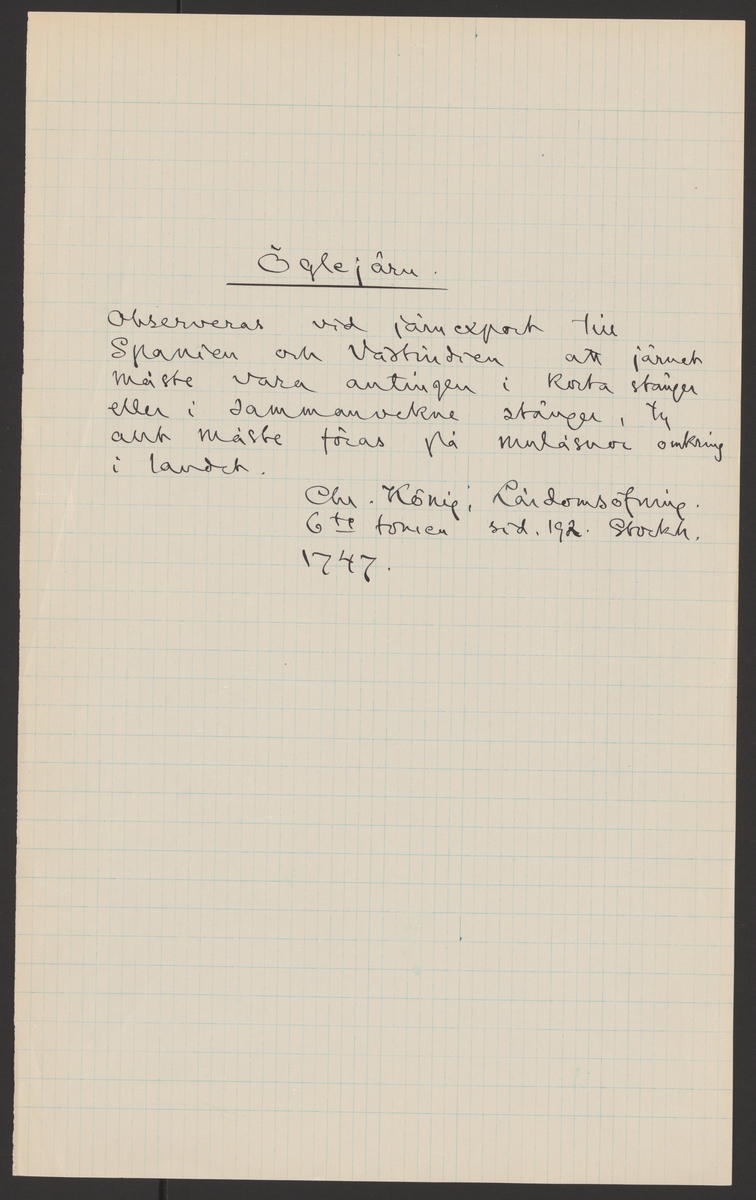 Öglejärn.
Observeras vid järnexport till
Spanien och Västindien att järnet
måste vara antingen i korta stänger
eller i sammanvekne stänger, ty
allt måste föras på mulåsnor omkring
i landet.
Chr. König; Lärdomsöfning.
6te tomen sid. 192. Stockh.
1747.